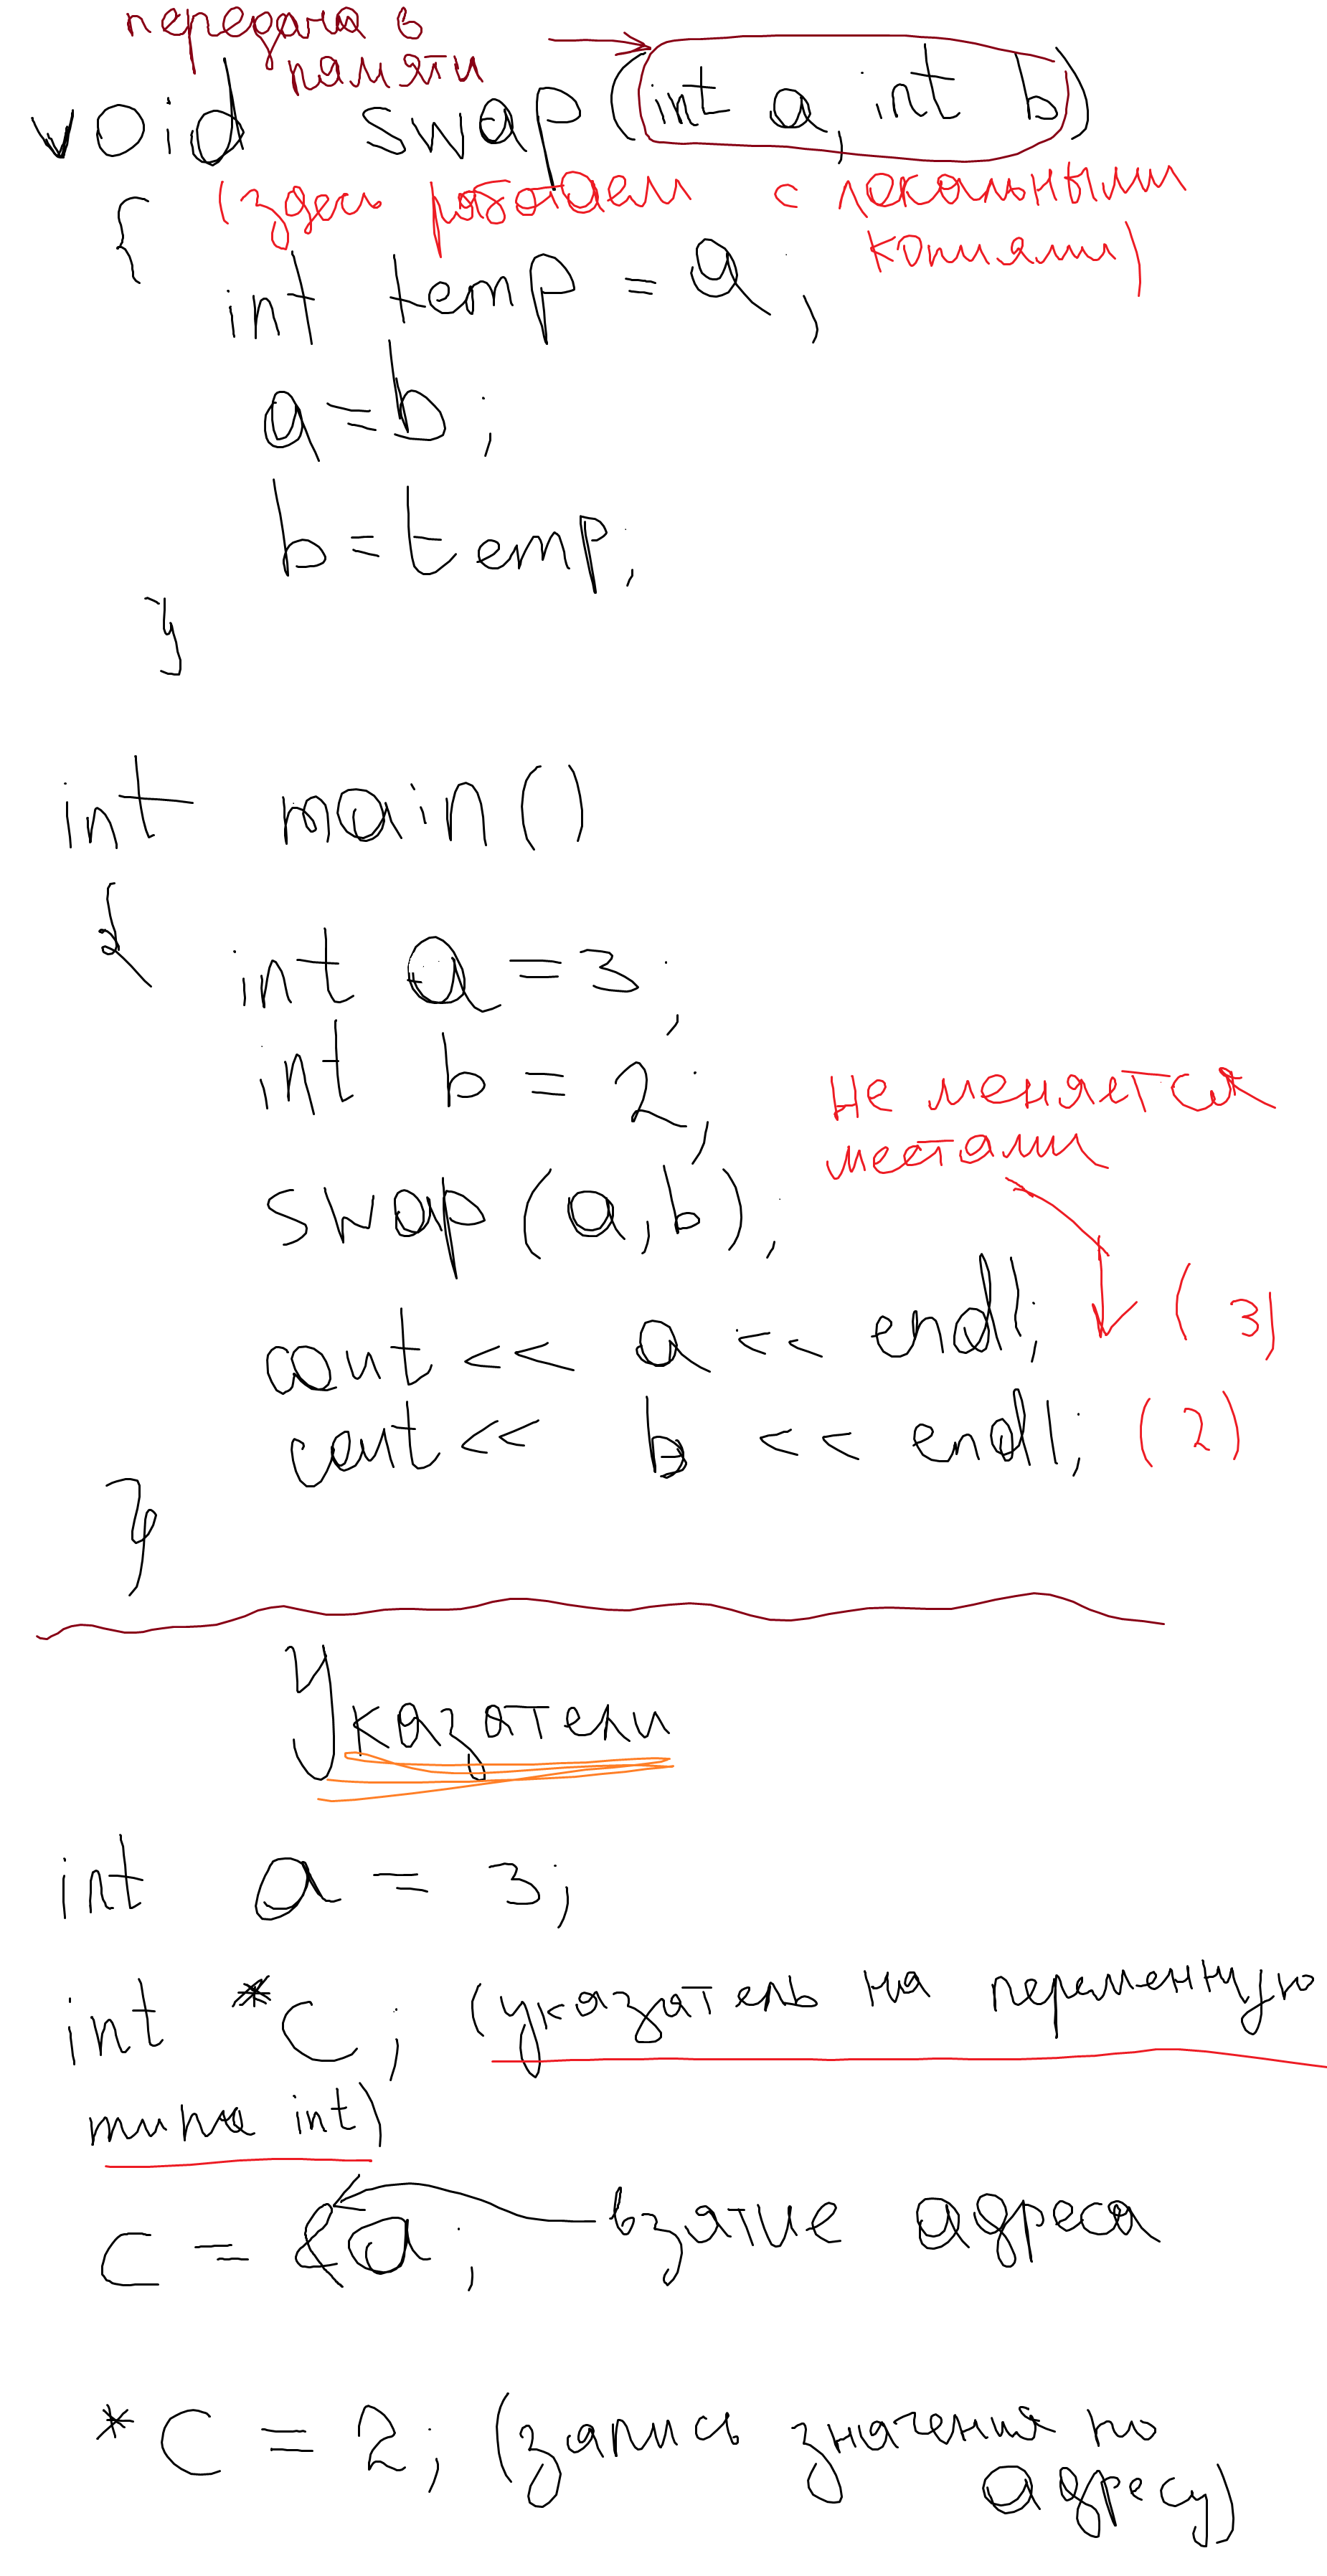 передача в
памяти
void swap(int a, int b)
{ (здесь работаем с локальными
копиями)
int temp = a;
a=b;
b=temp;
}
int main()
{
int a=3;
int b = 2;
не меняется
местами
swap(a,b);
cout << a << endl; (3)
cout << b << endl; (2)
}
Указатели
int a = 3;
int *c; (указатель на переменную
типа int)
c = &a; взятие адреса
*c = 2; (запись значения по
адресу)